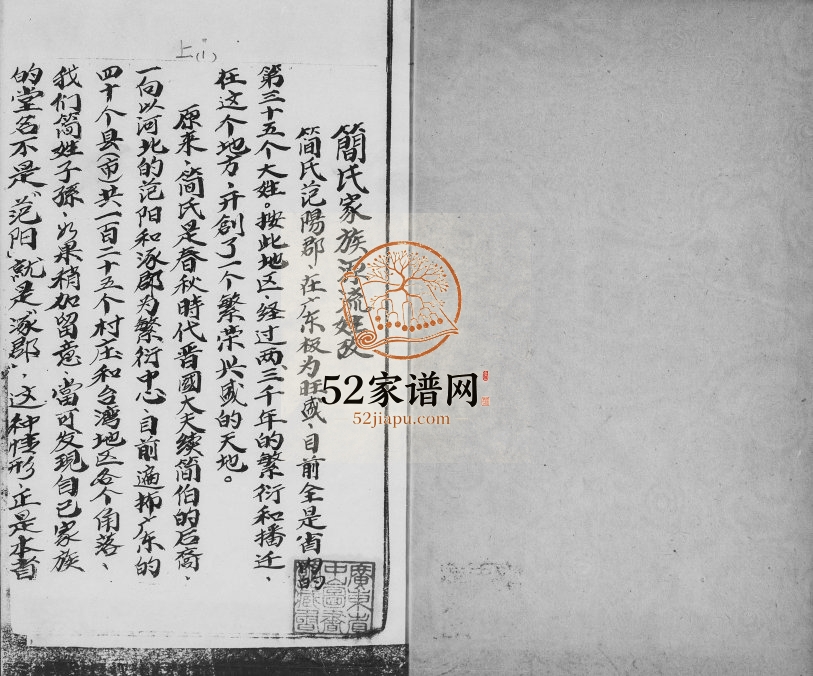 上(1)
簡氏家族源流姓攷
簡氏范陽郡、在广东极为旺盛、目前全是省内的
第三十五个大姓。按此地区、经过两、三千年的繁衍和播迁、
在这个地方、开創了一个繁荣兴盛的天地。
原来、簡氏是春秋時代晋國大夫续简伯的后裔、
一向以河北的范阳和涿郡为繁衍中心、目前遍布广东的
四十个县(市)共一百二十五个村庄和台湾地区各个角落、
我们简姓子孫、如果稍加留意、當可发现自己家族
的堂名不是“范阳”就是“涿郡”、这种情形、正是本着
廣東省
中山圖書
館藏書
52家谱网
52jiapu.com